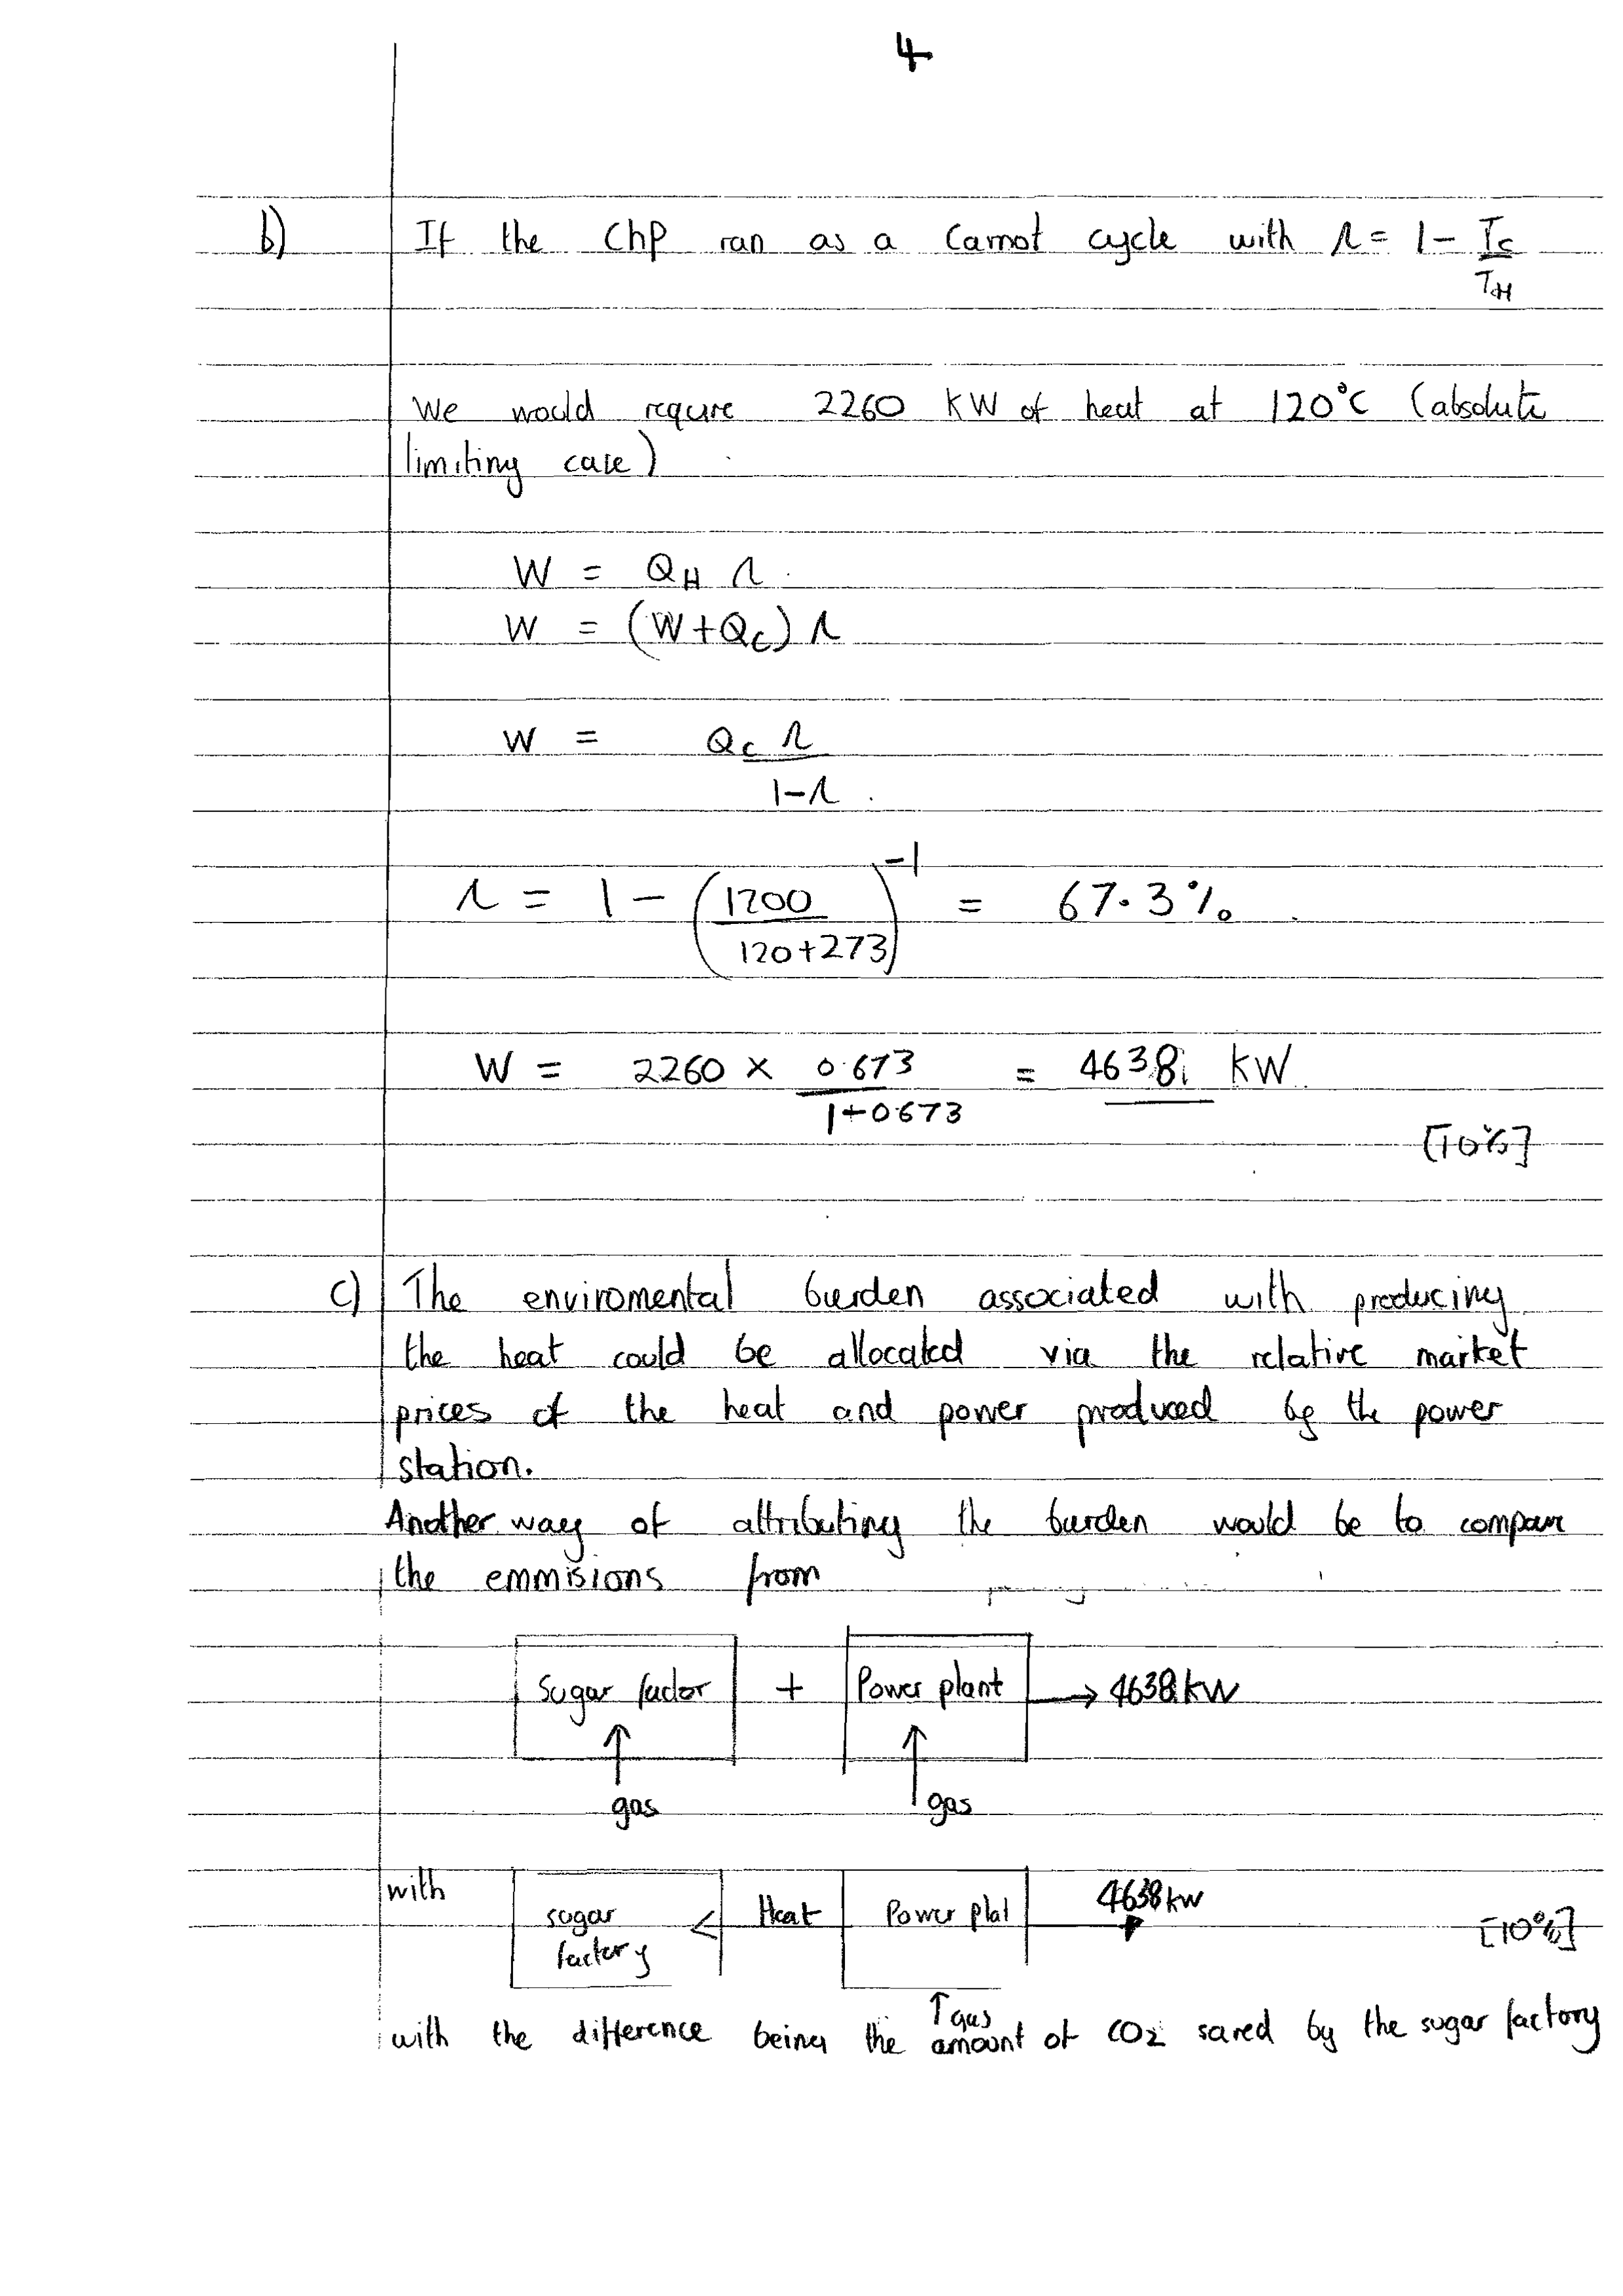 4
b) If the ChP ran as a Carnot cycle with η = 1 - Tc/TH
We would requre 2260 KW of heat at 120°C (absolute
limiting case)
W = QH η
W = (W+Qc) η
W = Qc η / 1-η
η = 1 - (1200 / 120+273)^-1 = 67.3%
W = 2260 × 0.673 / 1+0.673 = 4638 KW
[10%]
c) The enviromental burden associated with producing
the heat could be allocated via the relative market
prices of the heat and power produced by the power
station.
Another way of attributing the burden would be to compare
the emmisions from
Sugar factor + Power plant → 4638 kW
gas gas
with sugar factory < Heat Power plat 4638 kW
[10%]
↑ gas
with the difference being the amount of CO2 saved by the sugar factory